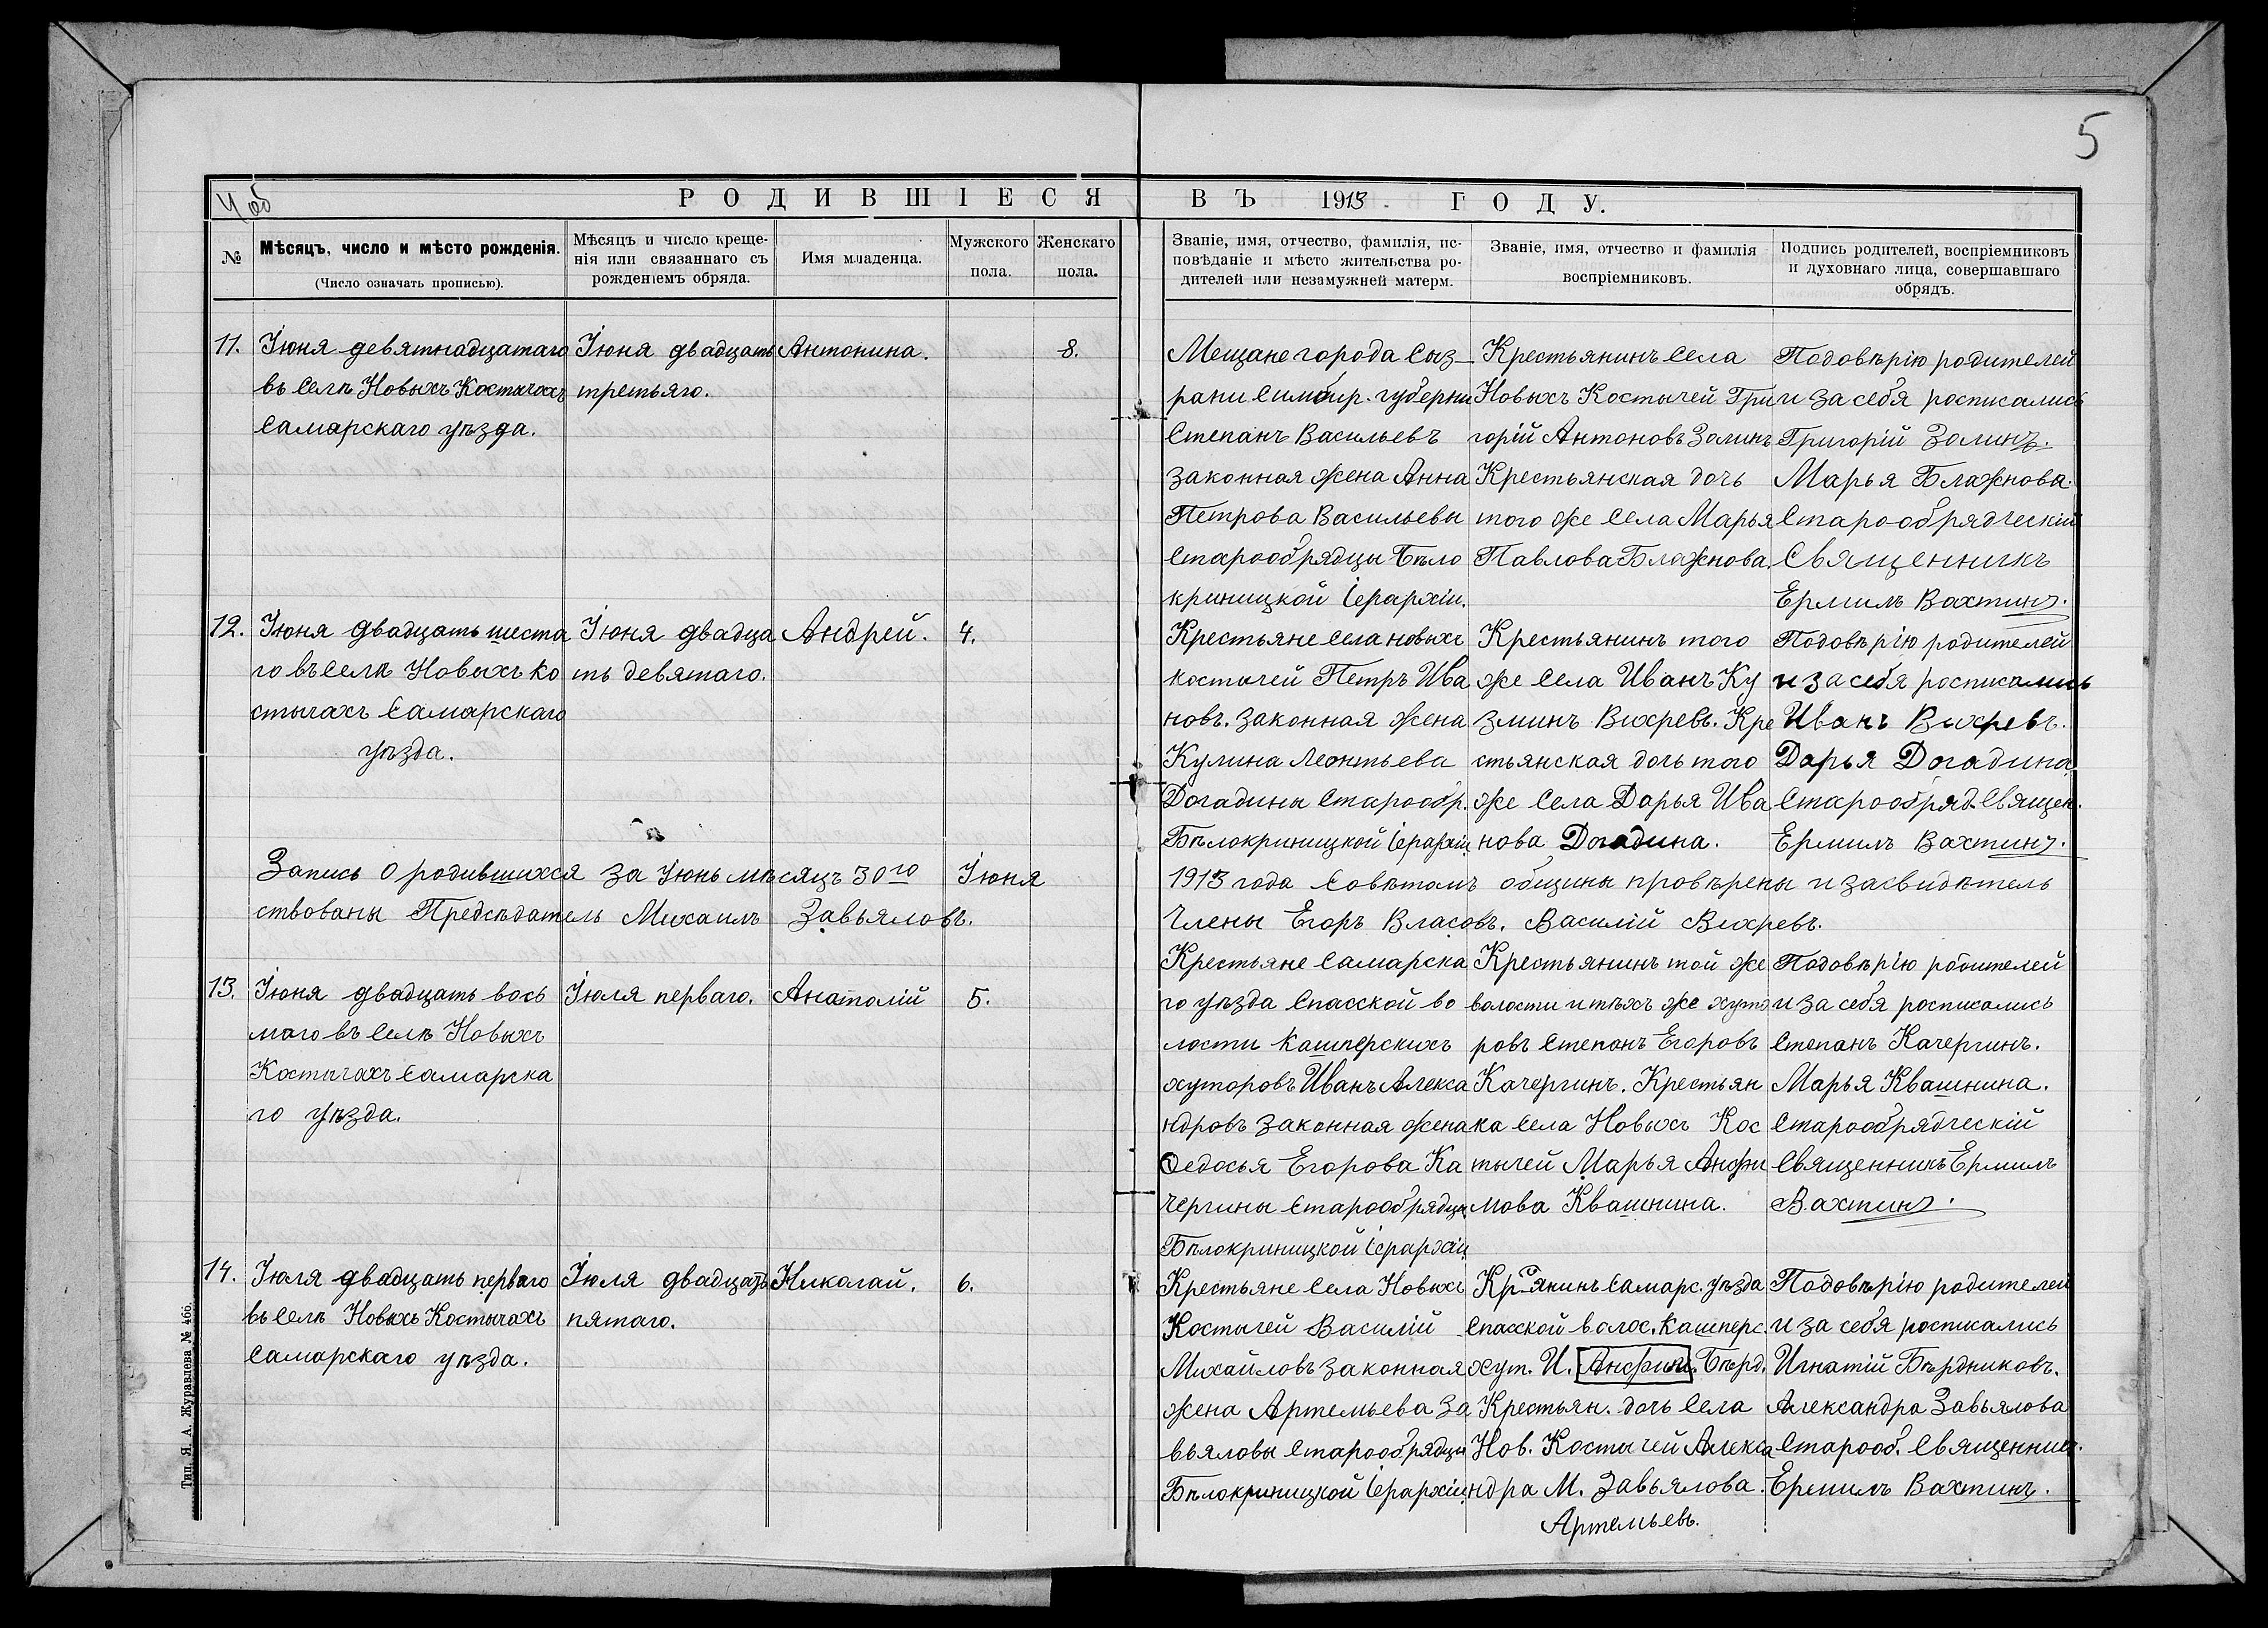 5
4 об
РОДИВШІЕСЯ ВЪ 1913 ГОДУ.
№
Мѣсяцъ, число и мѣсто рожденія.
(Число означать прописью).
Мѣсяцъ и число креще-
нія или связаннаго съ
рожденіемъ обряда.
Имя младенца.
Мужского
пола.
Женскаго
пола.
Званіе, имя, отчество, фамилія, ис-
повѣданіе и мѣсто жительства ро-
дителей или незамужней матерм.
Званіе, имя, отчество и фамилія
воспріемниковъ.
Подпись родителей, воспріемниковъ
и духовнаго лица, совершавшаго
обрядъ.
11.
Іюня девятнадцатаго
въ Селѣ Новыхъ Костычахъ
Самарскаго уѣзда.
Іюня двадцать
третьяго.
Антонина.
8.
Мещане города Сыз-
рани Симбир. губерни
Степанъ Васильевъ
законная жена Анна
Петрова Васильевы
Старообрядцы Бѣло
криницкой Іерархіи.
Крестьянинъ Села
Новыхъ Костычей Гри
горій Антоновъ Золинъ
Крестьянская дочь
того же Села Марья
Павлова Блажнова.
Подовѣрію родителей
и за себя росписались
Григорій Золинъ.
Марья Блажнова.
Старообрядческій
Священникъ
Ермилъ Вахтинъ.
12.
Іюня двадцать шеста
го въ Селѣ Новыхъ Ко
стычахъ Самарскаго
уѣзда.
Іюня двадца
ть девятаго.
Андрей.
4.
Крестьяне Села новыхъ
костычей Петръ Ива
новъ. законная жена
Кулина Леонтьева
Догадины Старообр.
Бѣлокриницкой Іерархіи
Крестьянинъ того
же Села Иванъ Ку
зминъ Вихревъ. Кре
стьянская дочь того
же Села Дарья Ива
нова Догадина.
Подовѣрію родителей
и за себя росписались
Иванъ Вихревъ.
Дарья Догадина.
Старообряд. Священ.
Ермилъ Вахтинъ.
Запись о родившихся за Іюнь мѣсяцъ 30го Іюня 1913 года Совѣтомъ общины провѣрены и засвидѣтель
ствованы Предсѣдатель Михаилъ Завьяловъ. Члены Егоръ Власовъ. Василій Вихревъ.
13.
Іюня двадцать вось
маго въ Селѣ Новыхъ
Костычахъ Самарска
го уѣзда.
Іюля перваго.
Анатолій
5.
Крестьяне Самарска
го уѣзда Спасской во
лости Кашперскихъ
хуторовъ Иванъ Алекса
ндровъ законная жена
Ѳедосья Егорова Ка
чергины Старообрядцы
Бѣлокриницкой Іерархіи
Крестьянинъ той же
волости и тѣхъ же хуто
ровъ Степанъ Егоровъ
Качергинъ. Крестьян
ка Села Новыхъ Кос
тычей Марья Анфи
мова Квашнина.
Подовѣрію родителей
и за себя росписались
Степанъ Качергинъ.
Марья Квашнина.
Старообрядческій
Священникъ Ермилъ
Вахтинъ.
14.
Іюля двадцать перваго
въ Селѣ Новыхъ Костычахъ
Самарскаго уѣзда.
Іюля двадцать
пятаго.
Николай.
6.
Крестьяне Села Новыхъ
Костычей Василій
Михайловъ законная
жена Артемьева За
вьяловы Старообрядцы
Бѣлокриницкой Іерархіи
Кр-янинъ Самарс. уѣзда
Спасской волос. Кашперс.
хут. И. Анфим. Бѣрд.
Крестьян. дочь Села
Нов. Костычей Алекса
ндра М. Завьялова.
Артемьевъ.
Подовѣрію родителей
и за себя росписались
Игнатій Бѣрдниковъ.
Александра Завьялова
Старооб. Священник.
Ермилъ Вахтинъ.
Тип. Я. А. Журавлева № 466.